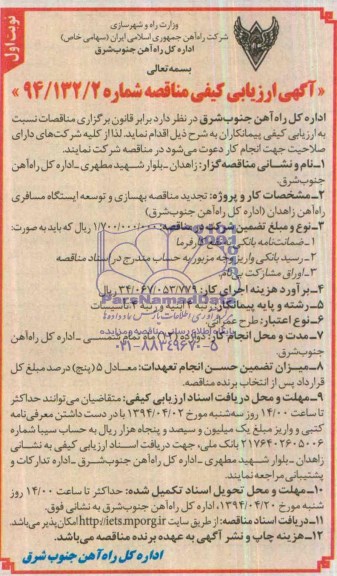 وزارت راه و شهرسازی
شرکت راه‌آهن جمهوری اسلامی ایران (سهامی خاص)
اداره کل راه‌آهن جنوب‌شرق
نوبت اول
بسمه‌تعالی
« آگهی ارزیابی کیفی مناقصه شماره ۹۴/۱۳۲/۲ »
اداره کل راه‌آهن جنوب‌شرق در نظر دارد برابر قانون برگزاری مناقصات نسبت
به ارزیابی کیفی پیمانکاران به شرح ذیل اقدام نماید. لذا از کلیه شرکت‌های دارای
صلاحیت جهت انجام کار دعوت می‌شود در مناقصه شرکت نمایند.
۱ـ نام و نشانی مناقصه‌گزار: زاهدان ـ بلوار شهید مطهری ـ اداره کل راه‌آهن
جنوب‌شرق.
۲ـ مشخصات کار و پروژه: تجدید مناقصه بهسازی و توسعه ایستگاه مسافری
راه‌آهن زاهدان (اداره کل راه‌آهن جنوب‌شرق)
۳ـ نوع و مبلغ تضمین شرکت در مناقصه: ۱/۷۰۰/۰۰۰/۰۰۰ ریال که باید به صورت:
۱ـ ضمانت‌نامه بانکی کارفرما
۲ـ رسید بانکی واریز وجه مزبور به حساب مندرج در اسناد مناقصه
۳ـ اوراق مشارکت بی‌نام.
۴ـ برآورد هزینه اجرای کار: ۳۴/۰۶۷/۰۵۳/۷۷۹ ریال
۵ـ رشته و پایه پیمانکار: رتبه ۴ ابنیه و رتبه ۴ تأسیسات
۶ـ نوع اعتبار: طرح
ParsNamadData
پایگاه اطلاع رسانی مناقصه و مزایده
۷ـ مدت و محل انجام کار: دوازده (۱۲) ماه تمام شمسی ـ اداره کل راه‌آهن
۰۲۱-۸۸۳۴۹۶۷۰-۵
جنوب‌شرق.
۸ـ میزان تضمین حسن انجام تعهدات: معادل ۵ (پنج) درصد مبلغ کل
قرارداد پس از انتخاب برنده مناقصه.
۹ـ مهلت و محل دریافت اسناد ارزیابی کیفی: متقاضیان می‌توانند حداکثر
تا ساعت ۱۴/۰۰ روز سه‌شنبه مورخ ۱۳۹۴/۰۴/۰۲ با در دست داشتن معرفی‌نامه
کتبی و واریز مبلغ یک میلیون و سیصد و پنجاه هزار ریال به حساب سیبا شماره
۲۱۷۶۴۰۲۶۰۵۰۰۶ بانک ملی، جهت دریافت اسناد ارزیابی کیفی به نشانی
زاهدان ـ بلوار شهید مطهری ـ اداره کل راه‌آهن جنوب‌شرق ـ اداره تدارکات و
پشتیبانی مراجعه نمایند.
۱۰ـ مهلت و محل تحویل اسناد تکمیل شده: حداکثر تا ساعت ۱۴/۰۰ روز
شنبه مورخ ۱۳۹۴/۰۴/۲۰ اداره کل راه‌آهن جنوب‌شرق به نشانی فوق.
۱۱ـ دریافت اسناد مناقصه: از طریق سایت http://iets.mporg.ir امکان‌پذیر می‌باشد.
۱۲ـ هزینه چاپ و نشر آگهی به عهده برنده مناقصه می‌باشد.
اداره کل راه‌آهن جنوب شرق